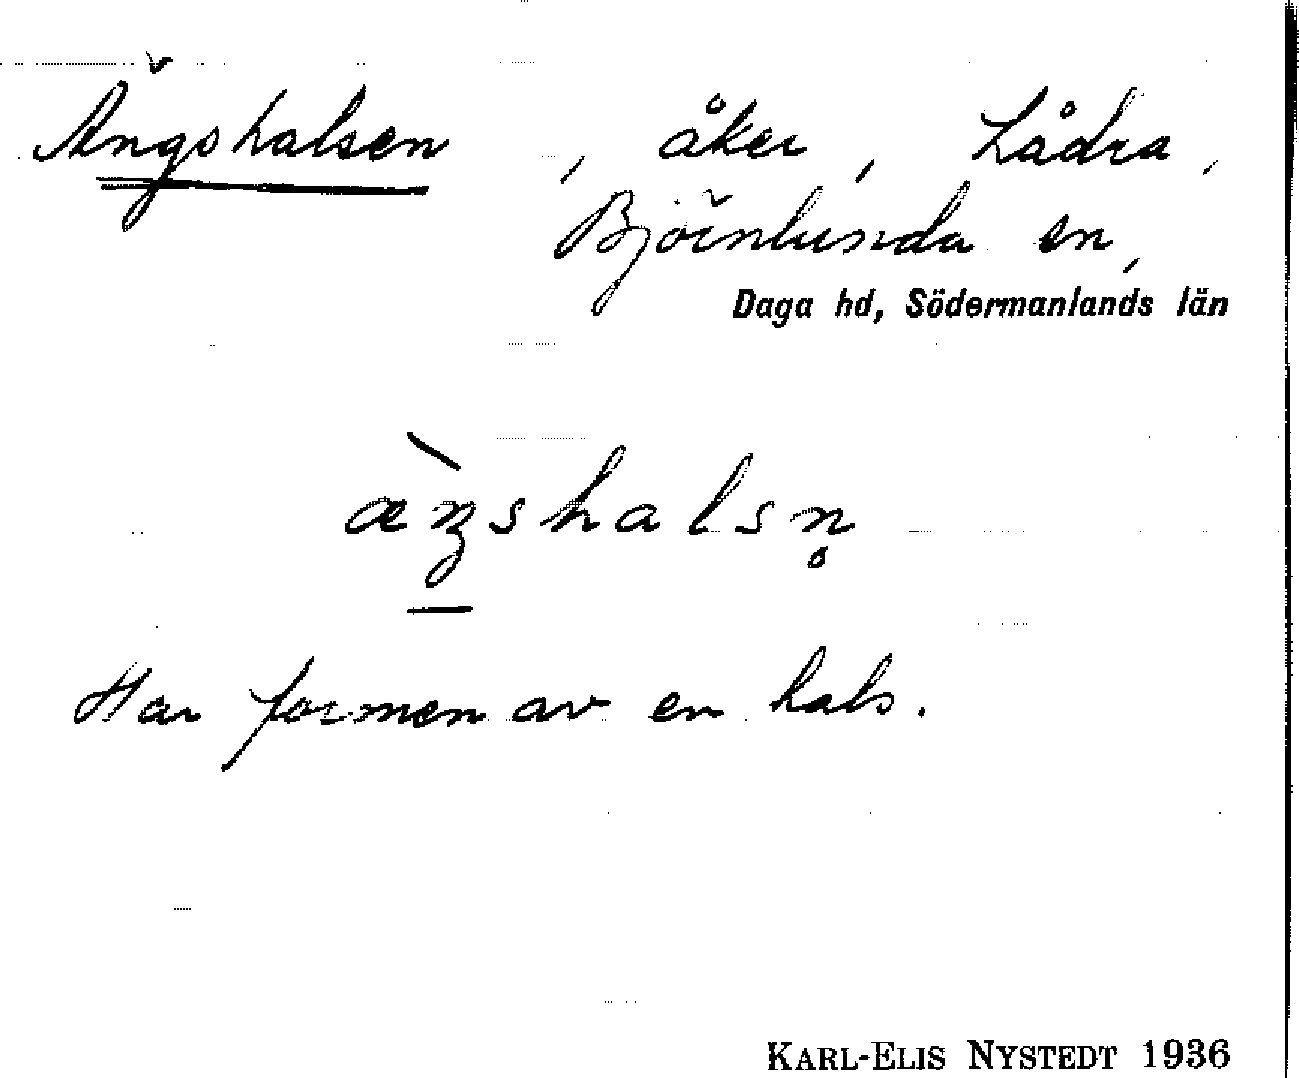 Ängshalsen, åker, Lådra,
Björnlunda sn,
Daga hd, Södermanlands län
æ̀ŋshalsn̥
Har formen av en hals.
KARL-ELIS NYSTEDT 1936